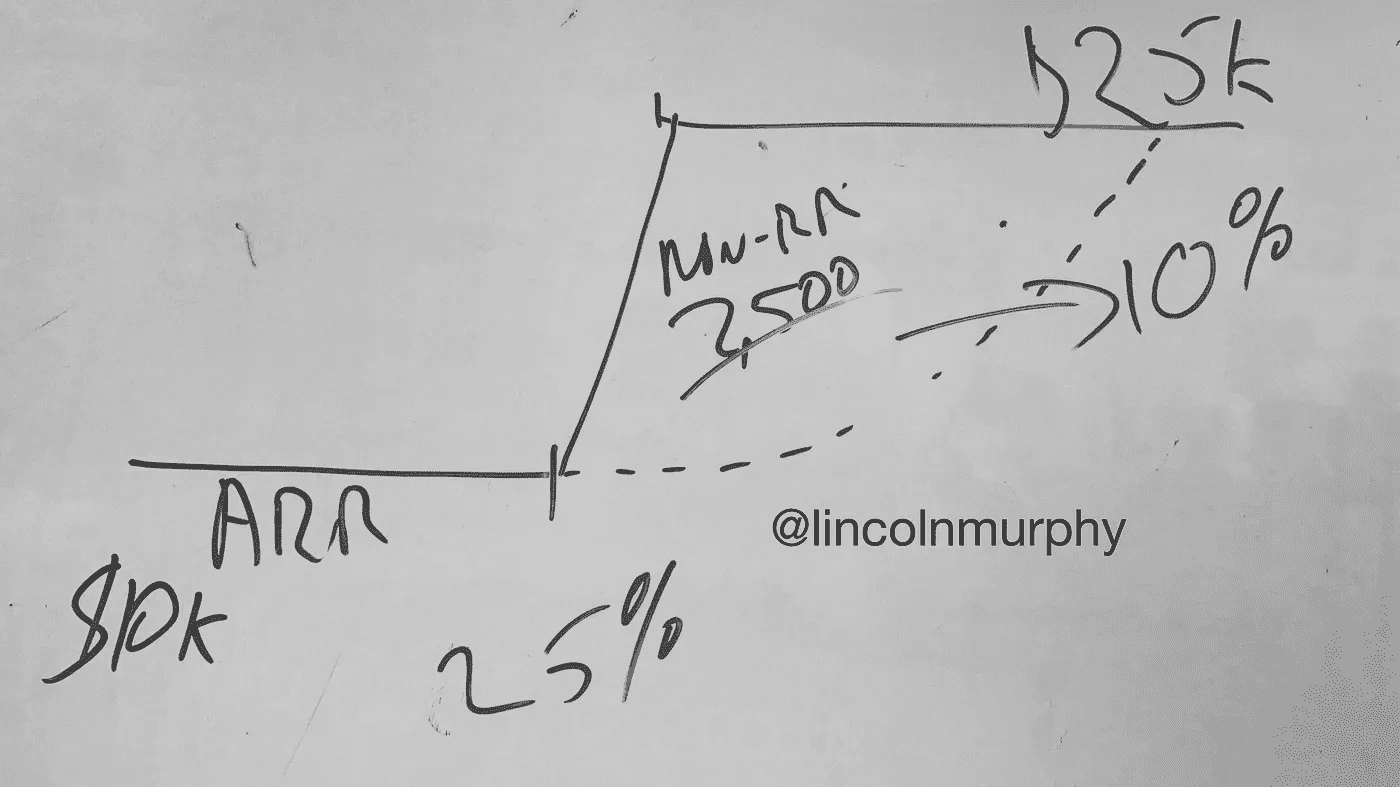 $25k
Non-RR
2,500
10%
ARR
$10k
25%
@lincolnmurphy